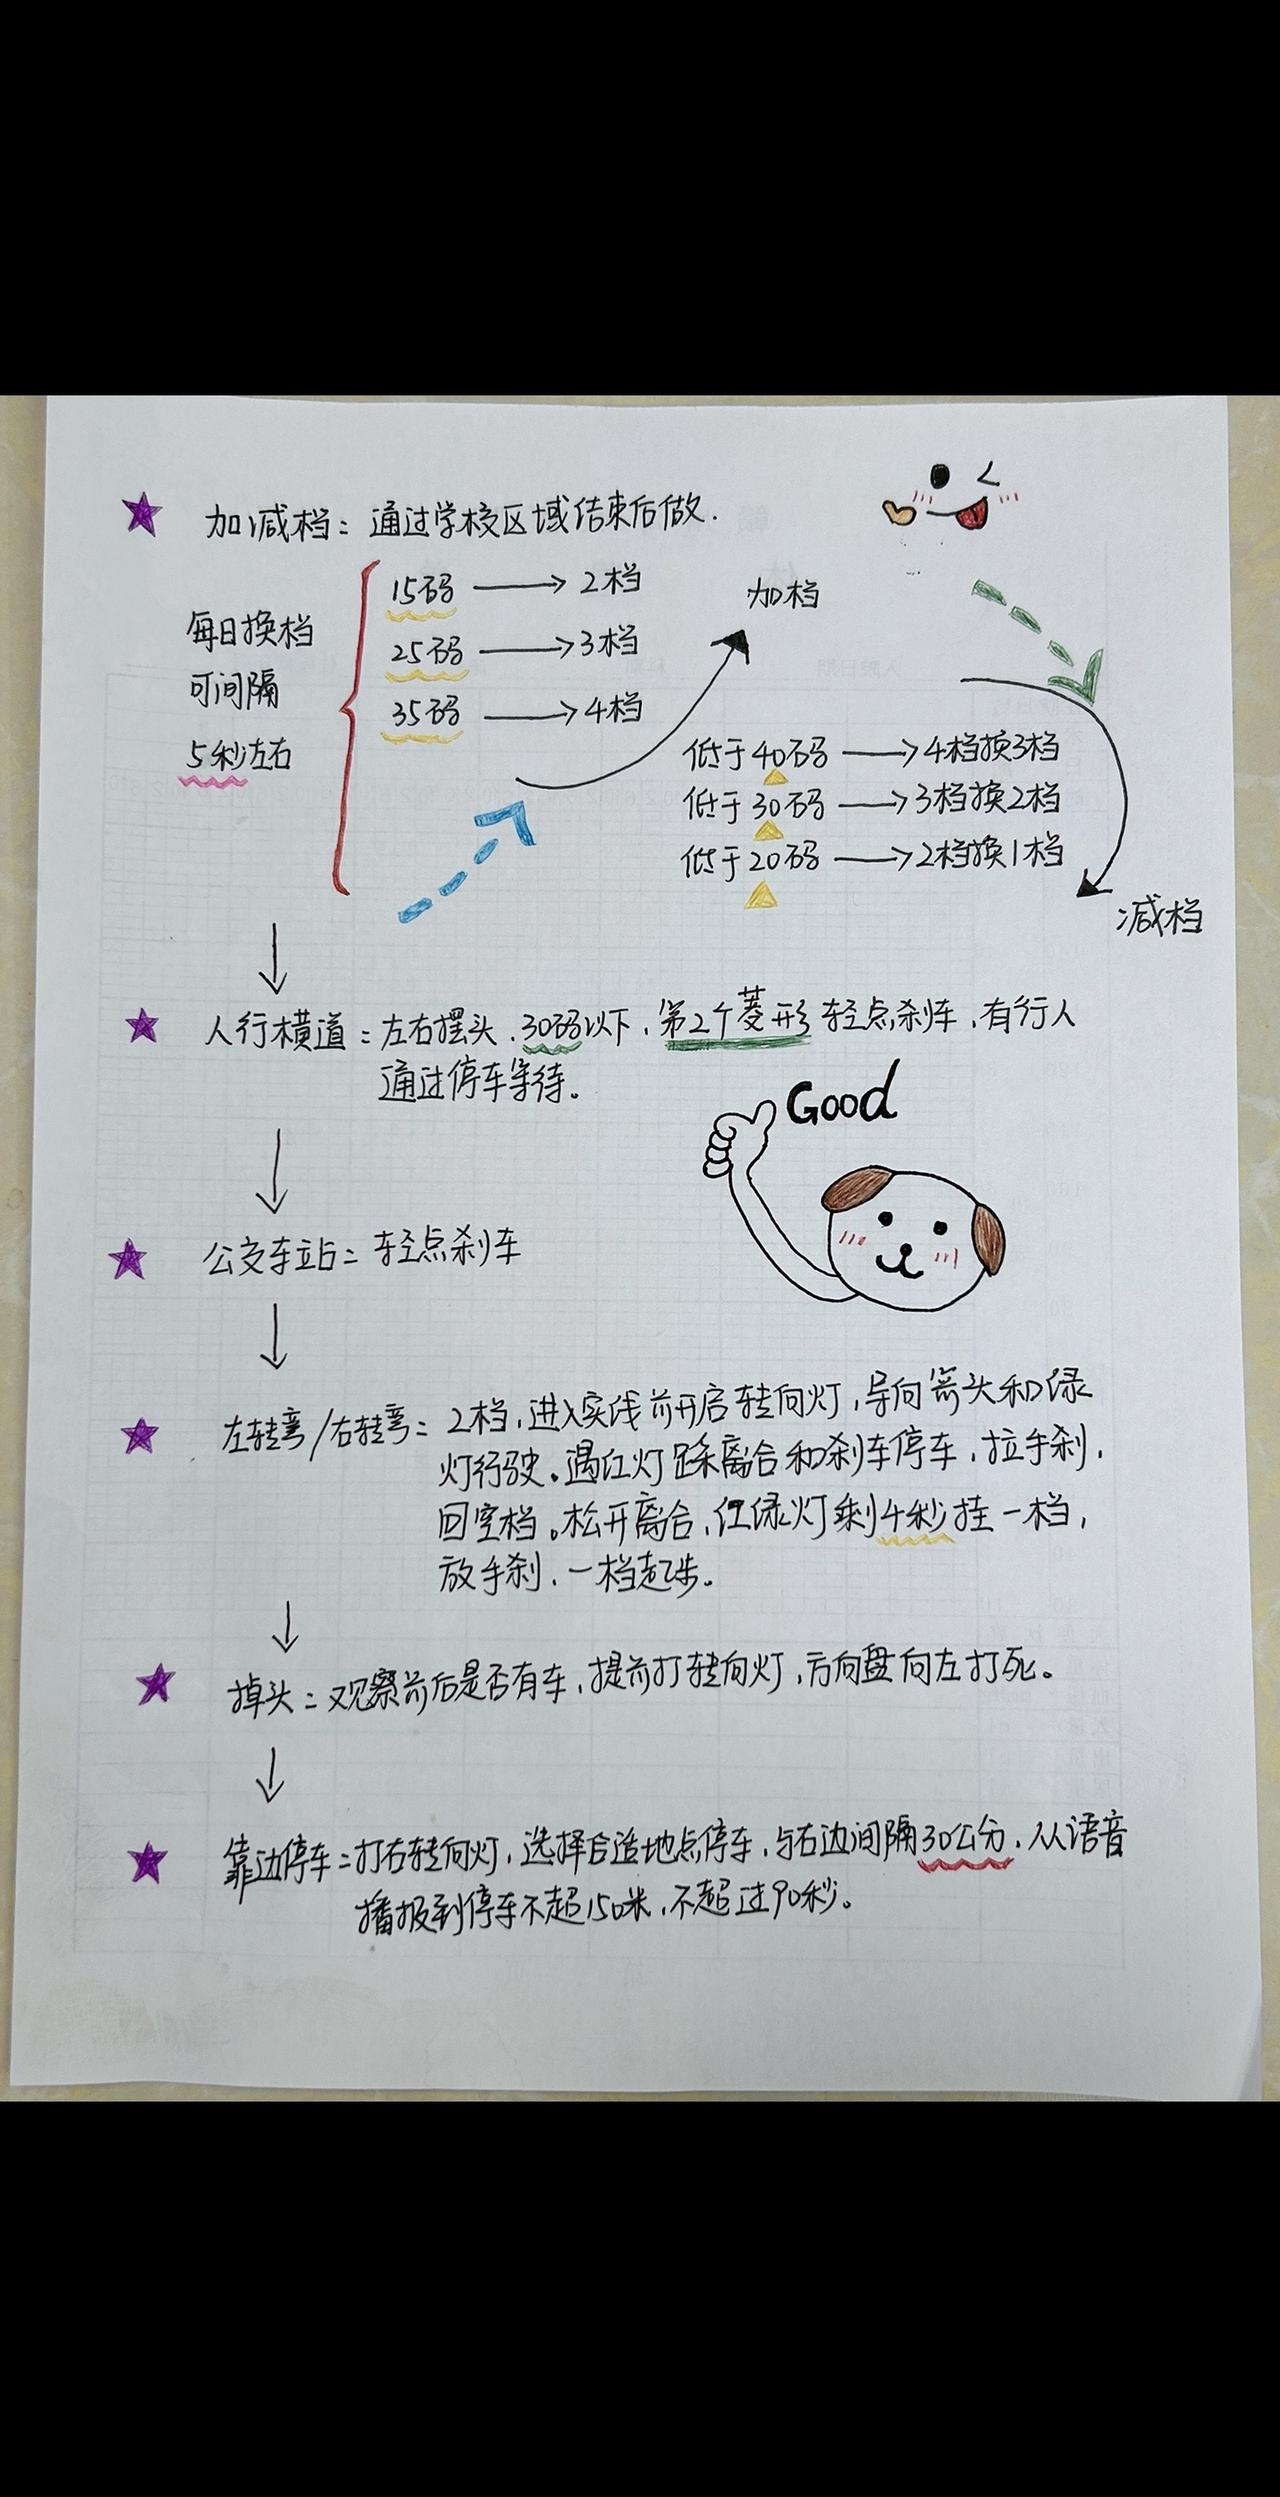 加减档：通过学校区域结束后做．
每日换档
可间隔
5秒左右
15码 → 2档
25码 → 3档
35码 → 4档
加档
低于40码 → 4档换3档
低于30码 → 3档换2档
低于20码 → 2档换1档
减档
人行横道：左右摆头、30码以下、第2个菱形轻点刹车、有行人
通过停车等待。
Good
公交车站：轻点刹车
左转弯/右转弯：2档，进入实线前开启转向灯，导向箭头和绿
灯行驶。遇红灯踩离合和刹车停车，拉手刹，
回空档。松开离合，红绿灯剩4秒挂一档，
放手刹、一档起步。
掉头：观察前后是否有车，提前打转向灯，方向盘向左打死。
靠边停车：打右转向灯，选择合适地点停车，与右边间隔30公分，从语音
播报到停车不超150米，不超过90秒。